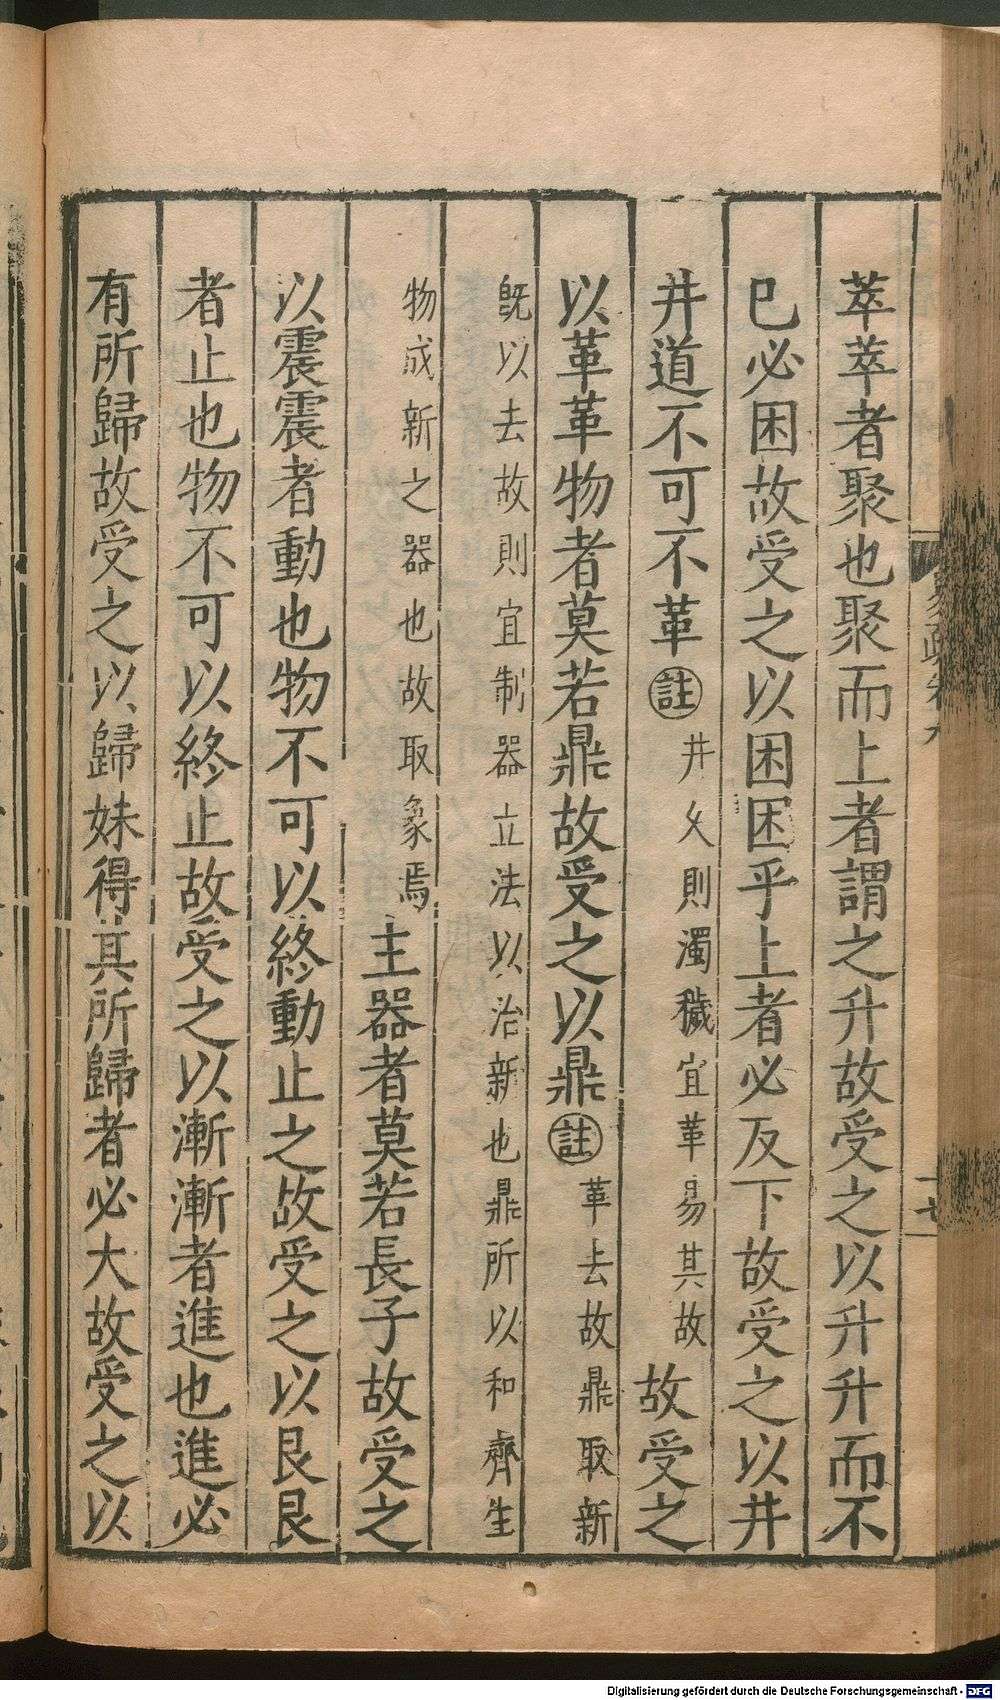 萃萃者聚也聚而上者謂之升故受之以升升而不
已必困故受之以困困乎上者必反下故受之以井
井道不可不革註井久則濁穢宜革易其故故受之
以革革物者莫若鼎故受之以鼎註革去故鼎取新
旣以去故則宜制器立法以治新也鼎所以和齊生
物成新之器也故取象焉主器者莫若長子故受之
以震震者動也物不可以終動止之故受之以艮艮
者止也物不可以終止故受之以漸漸者進也進必
有所歸故受之以歸妹得其所歸者必大故受之以
Digitalisierung gefördert durch die Deutsche Forschungsgemeinschaft - DFG